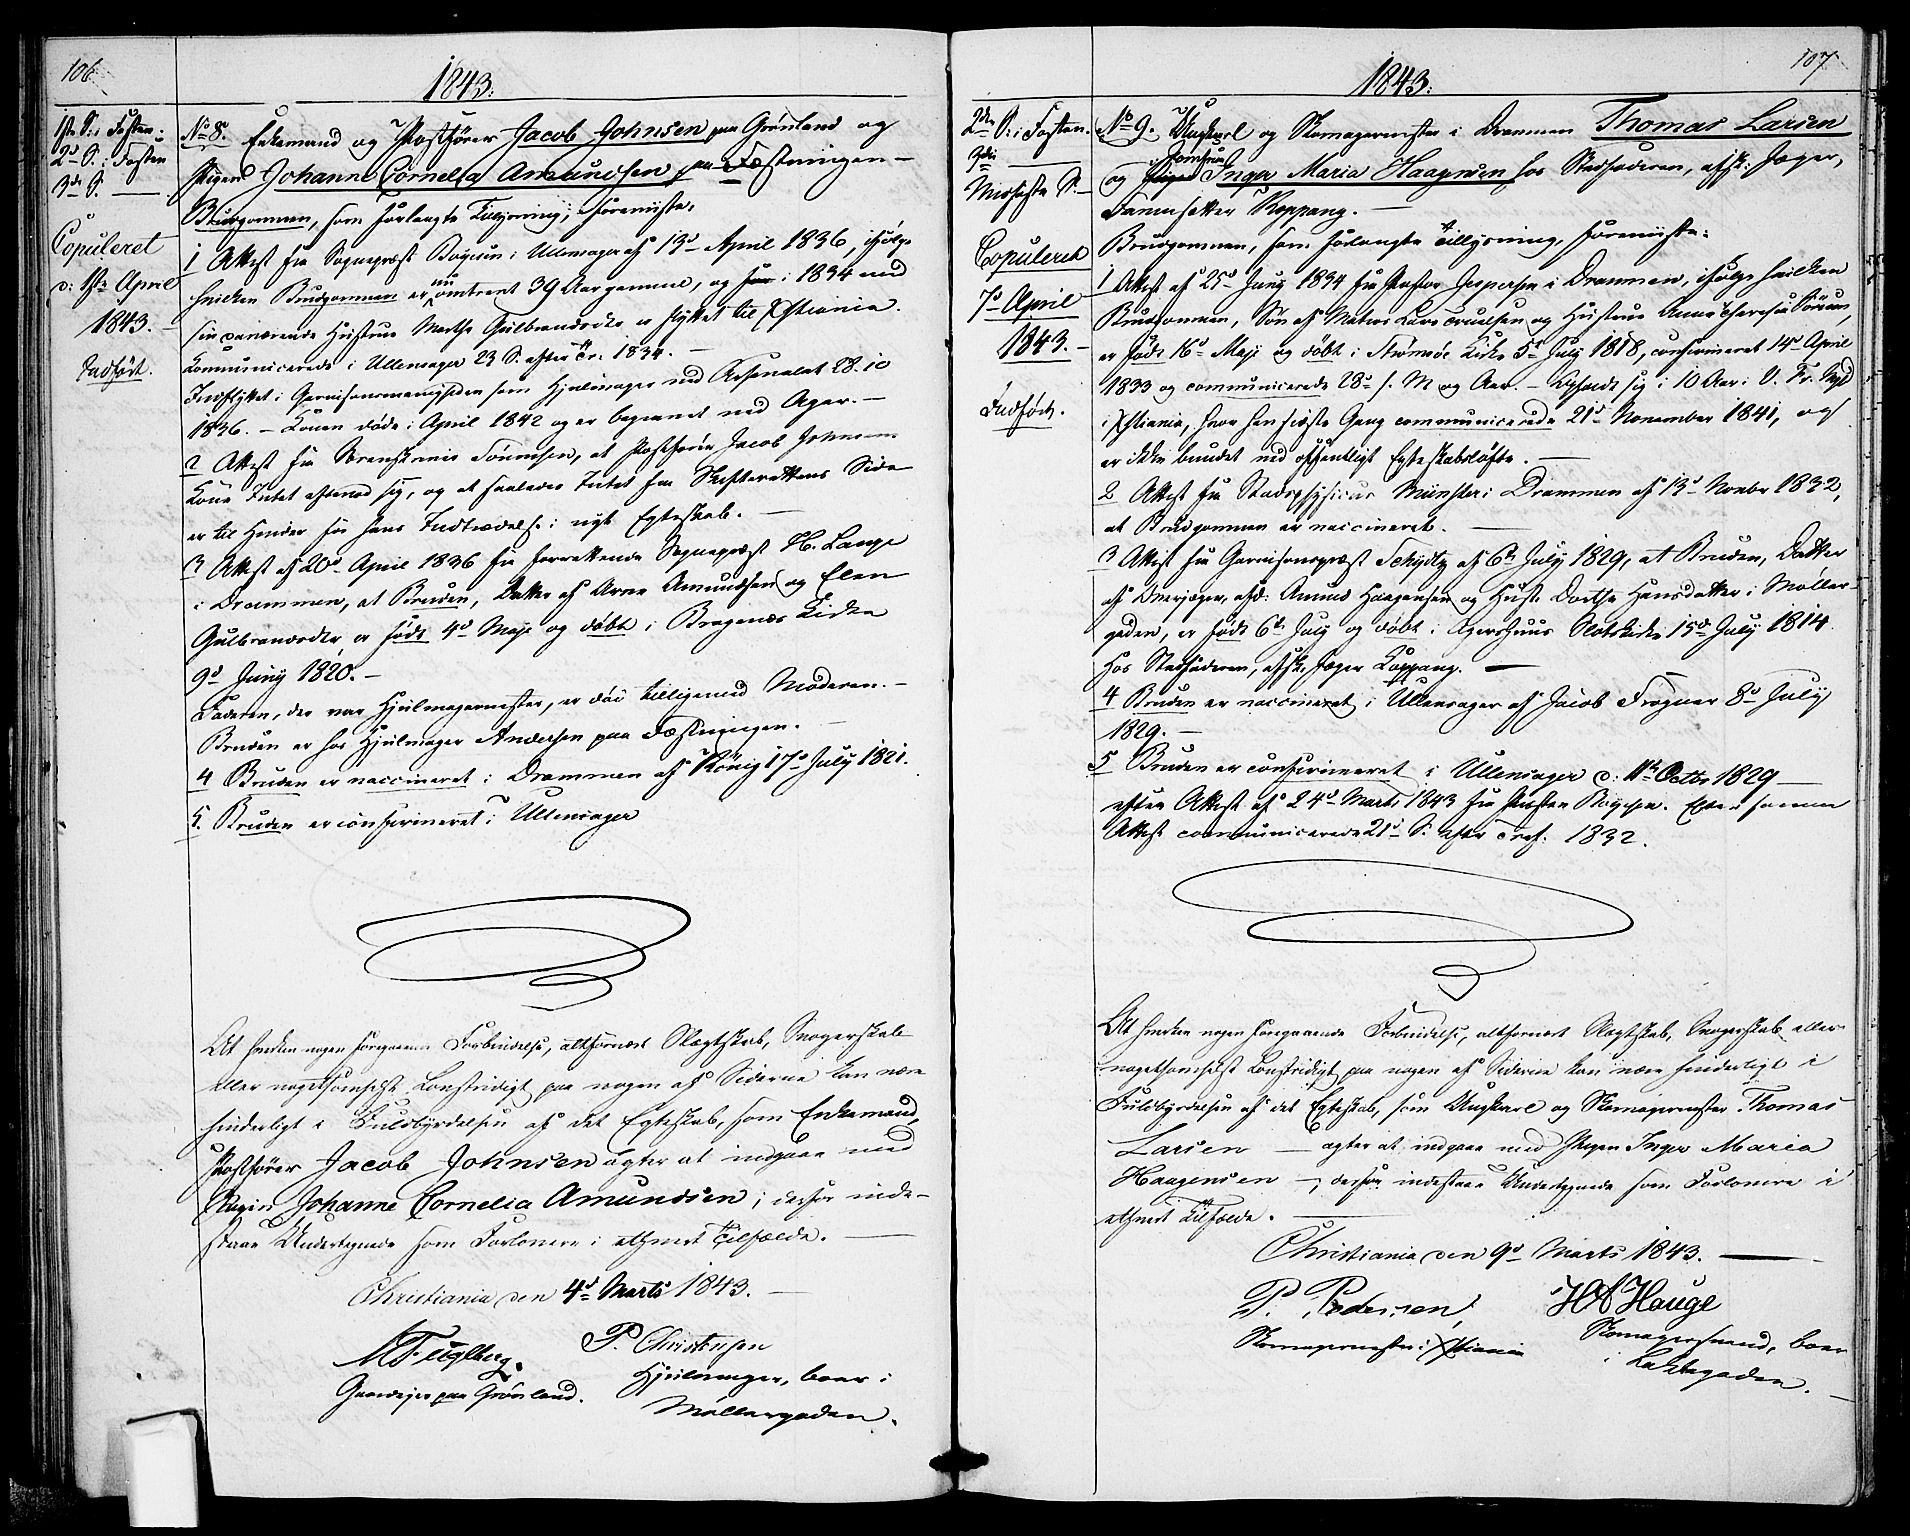 106.
1843.
1ste S. i Fasten.
2d S. i Fasten
3de S. —
Copuleret
d. 1ste April
1843.
Indført.
No 8. Enkemand og Postfører Jacob Johnsen paa Grønland og
Pigen Johanne Cornelia Amundsen paa Fæstningen —
Brudgommen, som forlangte Tillysning, foreviiste:
1 Attest fra Sognepræst Bøgesen i Ullensager af 13d April 1836, ifølge
hvilken Brudgommen er nu omtrent 39 Aar gammel, og i 1834 med
sin daværende Hustrue Marthe Gulbrandsdtr er flyttet til Xstiania.
Communicerede i Ullensager 23 S. efter Tr. 1834. —
Indflyttet i Garnisonsmenigheden som Hjulmager ved Arsenalet 28.10
1836. — Konen døde i April 1842 og er begravet ved Ager. —
2 Attest fra Sorenskriver Tønnesen, at Postfører Jacob Johnsens
Kone Intet efterlod sig, og at saaledes Intet fra Skifterettens Side
er til Hinder for hans Indtrædelse i nyt Egteskab. —
3 Attest af 20d April 1836 fra forrettende Sognepræst H. Lange
i Drammen, at Bruden, Datter af Arne Amundsen og Elen
Gulbrandsdtr, er født 4d Maji og døbt i Bragenæs Kirke
9d Juny 1820. —
Faderen, der var Hjulmagermester, er død tilligemed Moderen. —
Bruden er hos Hjulmager Andersen paa Fæstningen. —
4 Bruden er vaccineret i Drammen af König 17d July 1821.
5. Bruden er confirmeret i Ullensager
At hverken nogen foregaaende Forbindelse, altfornært Slægtskab, Svogerskab
eller nogetsomhelst Lovstridigt paa nogen af Siderne kan være
hinderligt i Fuldbyrdelsen af det Egteskab, som Enkemand,
Postfører Jacob Johnsen agter at indgaae med
Pigen Johanne Cornelia Amundsen; derfor inde-
staae Undertegnede som Forlovere i ethvert Tilfælde. —
Christiania den 4d Marts 1843. —
M Fuglberg.
Gaardejer paa Grønland.
P. Christensen
Hjulmager, boer i
Møllergaden.
107
1843.
2den S. i Fasten.
3die —
Midfaste S. —
Copuleret
7d April
1843. —
Indført.
No 9. Ungkarl og Skomagermester i Drammen Thomas Larsen
og Jomfrue Inger Maria Haagensen hos Stedfaderen, afsk: Jæger,
Koppang. —
Brudgommen, som forlangte Tillysning, foreviiste:
1 Attest af 25d Juny 1834 fra Pastor Jespersen i Drammen, ifølge hvilken
Brudgommen, Søn af Matros Lars Truelsen og Hustrue Anne Theresia Sörum,
er født 16d Maji og døbt i Strømsøe Kirke 5d July 1818, confirmeret 14d April
1833 og communicerede 28d s. M og Aar. — Opholdt sig i 10 Aar i V. Fr. Sogn
i Xstiania, hvor han sidste Gang communicerede 21d November 1841, og
er ikke bundet ved offentligt Egteskabsløfte. —
2 Attest fra Stadsphysicus Münster i Drammen af 13d Novbr 1832,
at Brudgommen er vaccineret. —
3 Attest fra Garnisonspræst Schydtz af 6d July 1829, at Bruden, Datter
af Overjæger, afd: Amund Haagensen og Hust. Dorthe Hansdatter i Møller-
gaden, er født 6d July og døbt i Agershuus Slotskirke 15d July 1814.
hos Stedfaderen, afsk. Jæger Koppang. —
4 Bruden er vaccineret i Ullensager af Jacob Frogner 8d July
1829. —
5 Bruden er confirmeret i Ullensager d: 11te Octbr 1829 —
efter Attest af 24d Marts 1843 fra Præsten Bøgesen. Efter samme
Attest communicerede 21d S. efter Tref. 1832.
At hverken nogen foregaaende Forbindelse, altfornært Slægtskab, Svogerskab eller
nogetsomhelst Lovstridigt paa nogen af Siderne kan være hinderligt i
Fuldbyrdelsen af det Egteskab, som Ungkarl og Skomagermester Thomas
Larsen — agter at indgaae med Pigen Inger Maria
Haagensen —; derfor indestaae Undertegnede som Forlovere i
ethvert Tilfælde. —
Christiania den 9d Marts 1843. —
P. Pedersen,
Skomagermester i Xstiania
HA Hauge
Skomagersvend, boer
i Lakkegaden. —